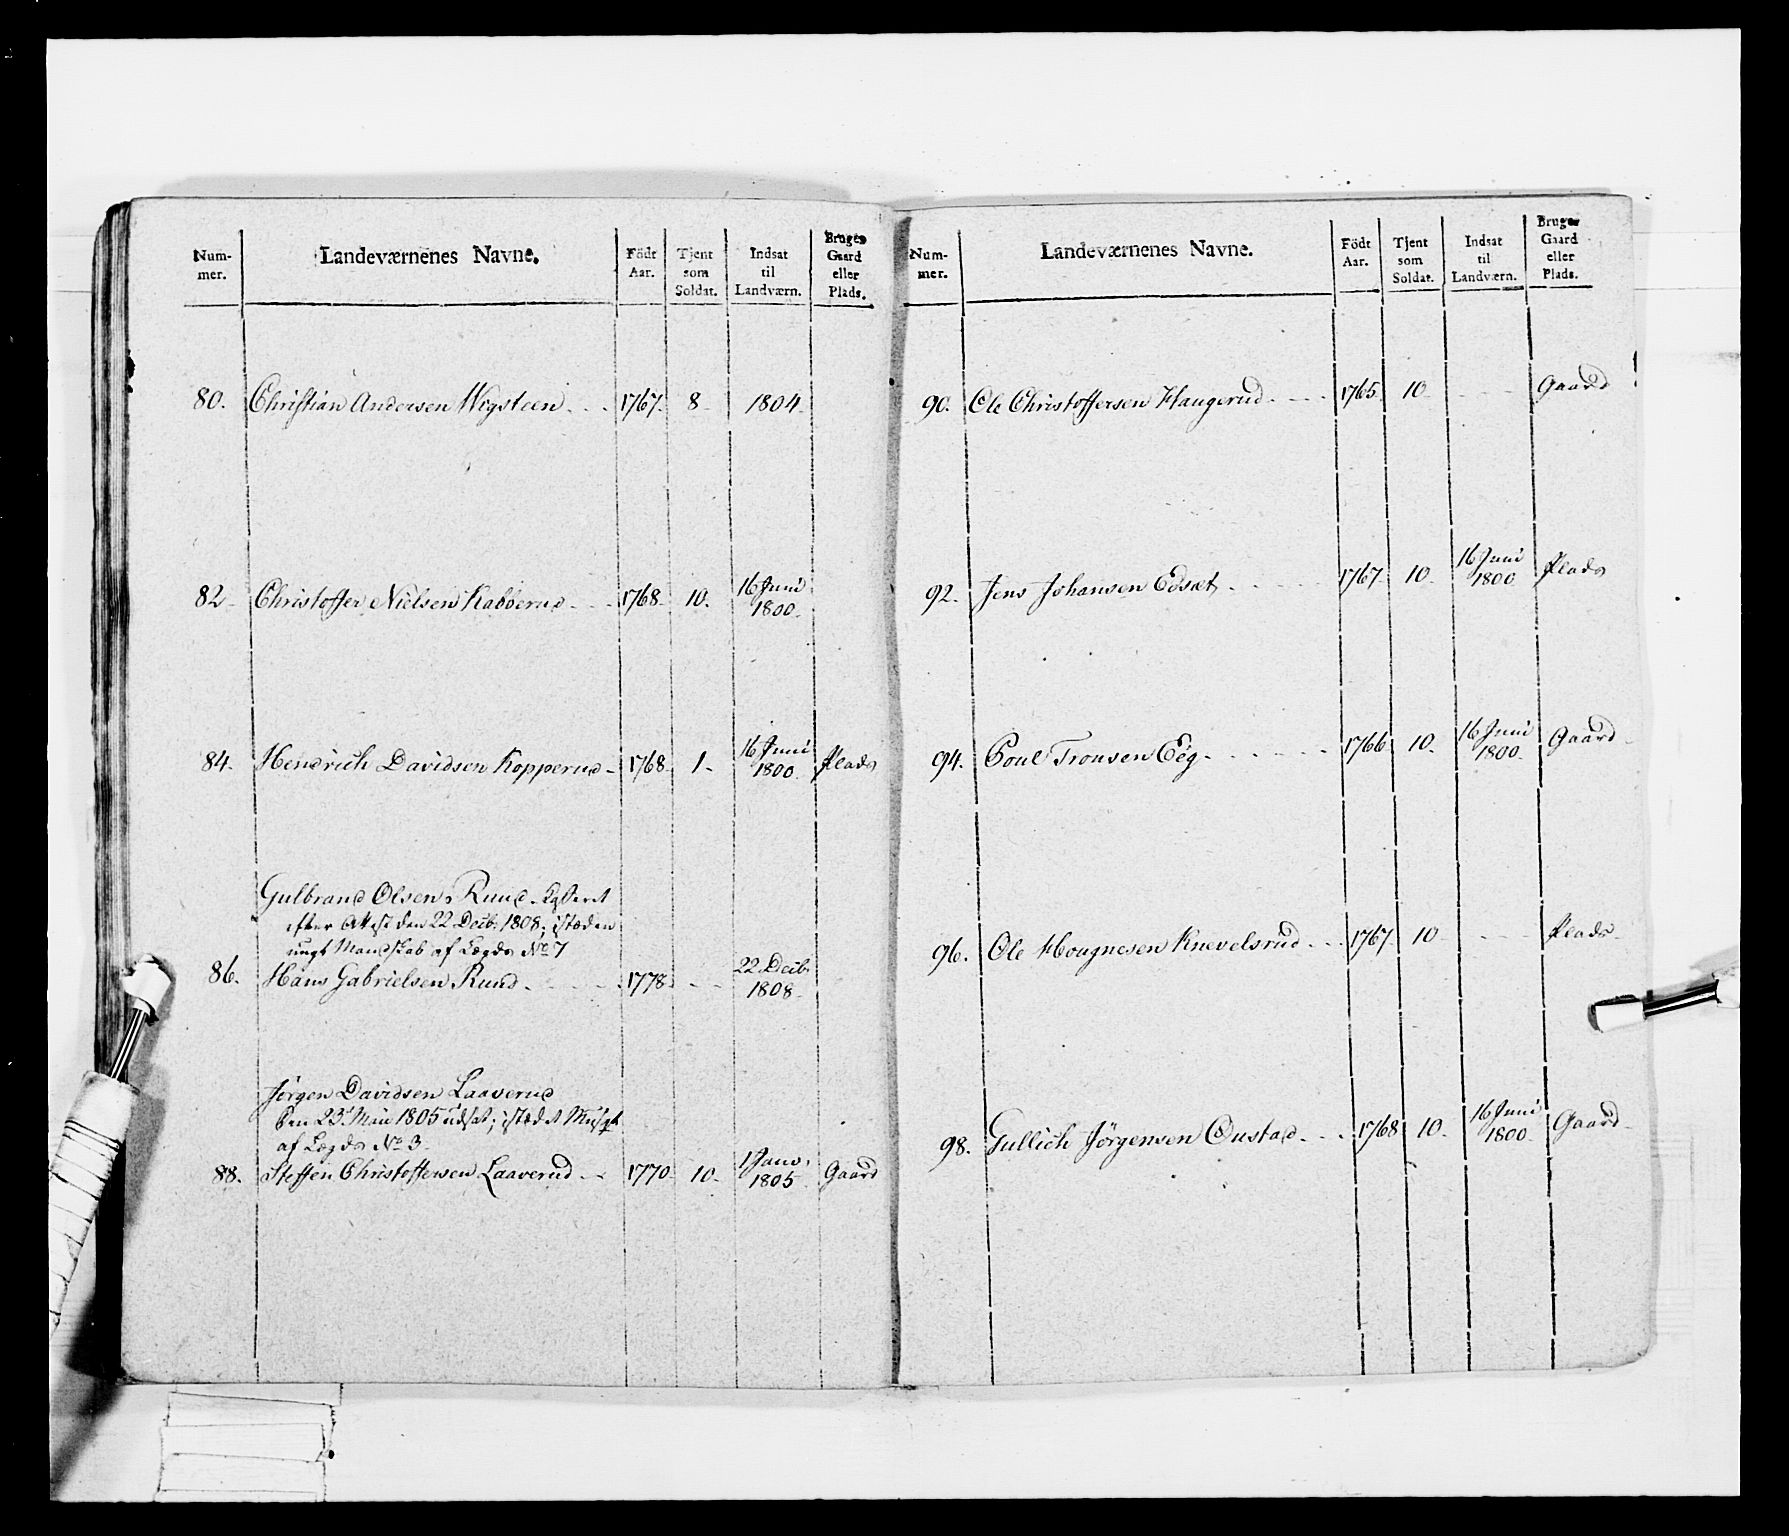 Num-
mer.
Landeværnenes Navne.
Födt
Aar.
Tjent
som
Soldat.
Indsat
til
Landværn.
Bruger
Gaard
eller
Plads.
80. Christian Andersen Wigsteen 1767. 8 1804.
82 Christoffer Nielsen Kabberud 1768. 10. 16 Juni
1800.
84. Hendrich Davidsen Kopperud 1768. 1. 16 Juni
1800. Plads
Gulbrand Olsen Ruud
efter Attest den 22 Decb: 1808, istæden
ungt Mandskab af Lægds No 7
86. Hans Gabrielsen Ruud 1778 22 Decb.
1808.
Jörgen Davidsen Laaverud
den 23 Mai 1805 udsat; istædet
af Lægds No 3
88. Steffen Christoffersen Laaverud 1770 10. 1 Janv.
1805 Gaard
Num-
mer.
Landeværnenes Navne.
Födt
Aar.
Tjent
som
Soldat.
Indsat
til
Landværn.
Bruger
Gaard
eller
Plads.
90. Ole Christoffersen Haugerud 1765 10 Gaard
92. Jens Johansen Edsæt 1767 10. 16 Juni
1800 Plads
94. Poul Tronsen Eeg 1766 10. 16 Juni
1800. Gaard
96. Ole Mougnesen Knevelsrud 1767 10 Plads
98. Gullich Jörgensen Oustad 1768 10. 16 Juni
1800. Gaard